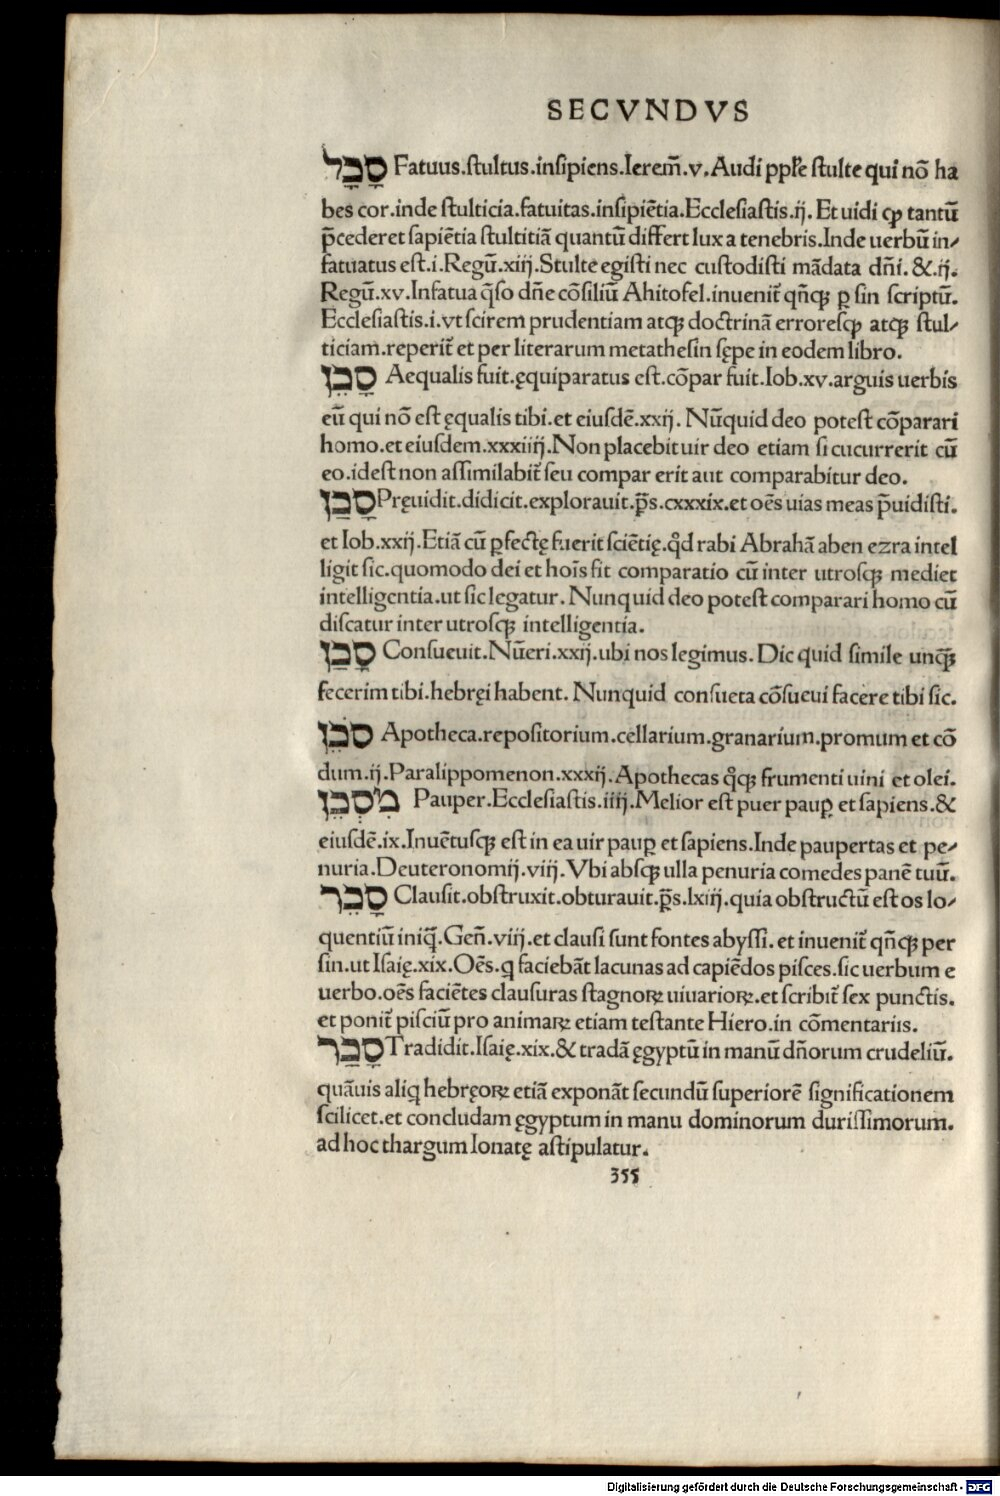 SECVNDVS
סָכָל Fatuus.stultus.insipiens.Ierem̃.v.Audi ppl̃e stulte qui nõ ha
bes cor.inde stulticia.fatuitas.insipiẽtia.Ecclesiastis.ij. Et uidi ꝙ tantũ
p̃cederet sapiẽtia stultitiã quantũ differt lux a tenebris.Inde uerbũ in⸗
fatuatus est.i.Regũ.xiij.Stulte egisti nec custodisti mãdata dñi.&.ij.
Regũ.xv.Infatua q̃so dñe cõsiliũ Ahitofel.inuenit᷑ qñcꝫ ꝑ sin scriptũ.
Ecclesiastis.i.vt scirem prudentiam atqꝫ doctrinã erroresꝙ atqꝫ stul⸗
ticiam.reperit᷑ et per literarum metathesin sępe in eodem libro.
סָכֵן Aequalis fuit.ęquiparatus est.cõpar fuit.Iob.xv.arguis uerbis
eũ qui nõ est ęqualis tibi.et eiusdẽ.xxij. Nũquid deo potest cõparari
homo.et eiusdem.xxxiiij.Non placebit uir deo etiam si cucurrerit cũ
eo.idest non assimilabit᷑ seu compar erit aut comparabitur deo.
סָכַן Pręuidit.didicit.explorauit.p̃s.cxxxix.et oẽs uias meas p̃uidisti.
et Iob.xxij.Etiã cũ ꝑfectę fuerit sciẽtię.q̃d rabi Abrahã aben ezra intel
ligit sic.quomodo dei et hoĩs fit comparatio cũ inter utrosqꝫ mediet
intelligentia.ut sic legatur. Nunquid deo potest comparari homo cũ
discatur inter utrosqꝫ intelligentia.
סָכַן Consueuit.Nũeri.xxij.ubi nos legimus. Dic quid simile unq̃ꝫ
fecerim tibi.hebręi habent. Nunquid consueta cõsueui facere tibi sic.
סֹכֵן Apotheca.repositorium.cellarium.granarium.promum et cõ
dum.ij.Paralippomenon.xxxij.Apothecas q̃qꝫ frumenti uini et olei.
מִסְכֵּן Pauper.Ecclesiastis.iiij.Melior est puer pauꝑ et sapiens.&
eiusdẽ.ix.Inuẽtusqꝫ est in ea uir pauꝑ et sapiens.Inde paupertas et pe⸗
nuria.Deuteronomij.viij. Vbi absqꝫ ulla penuria comedes panẽ tuũ.
סָכֵר Clausit.obstruxit.obturauit.p̃s.lxiij.quia obstructũ est os lo⸗
quentiũ iniq̃.Geñ.viij.et clausi sunt fontes abyssi. et inuenit᷑ qñcꝫ per
sin.ut Isaię.xix.Oẽs.q faciebãt lacunas ad capiẽdos pisces.sic uerbum e
uerbo.oẽs faciẽtes clausuras stagnoꝝ uiuarioꝝ.et scribit᷑ sex punctis.
et ponit᷑ pisciũ pro animaꝝ etiam testante Hiero.in cõmentariis.
סָכַר Tradidit.Isaię.xix.& tradã ęgyptũ in manũ dñorum crudeliũ.
quãuis aliq hebręoꝝ etiã exponãt secundũ superiorẽ significationem
scilicet.et concludam ęgyptum in manu dominorum durissimorum.
ad hoc thargum Ionatę astipulatur.
355
Digitalisierung gefördert durch die Deutsche Forschungsgemeinschaft - DFG